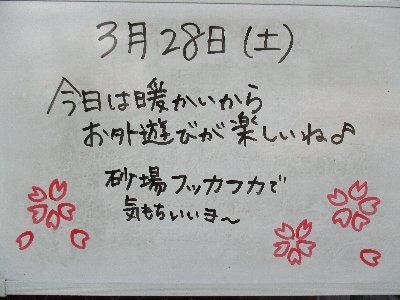 3月28日(土)
今日は暖かいから
お外遊びが楽しいね♪
砂場フッカフカで
気もちいいヨ～